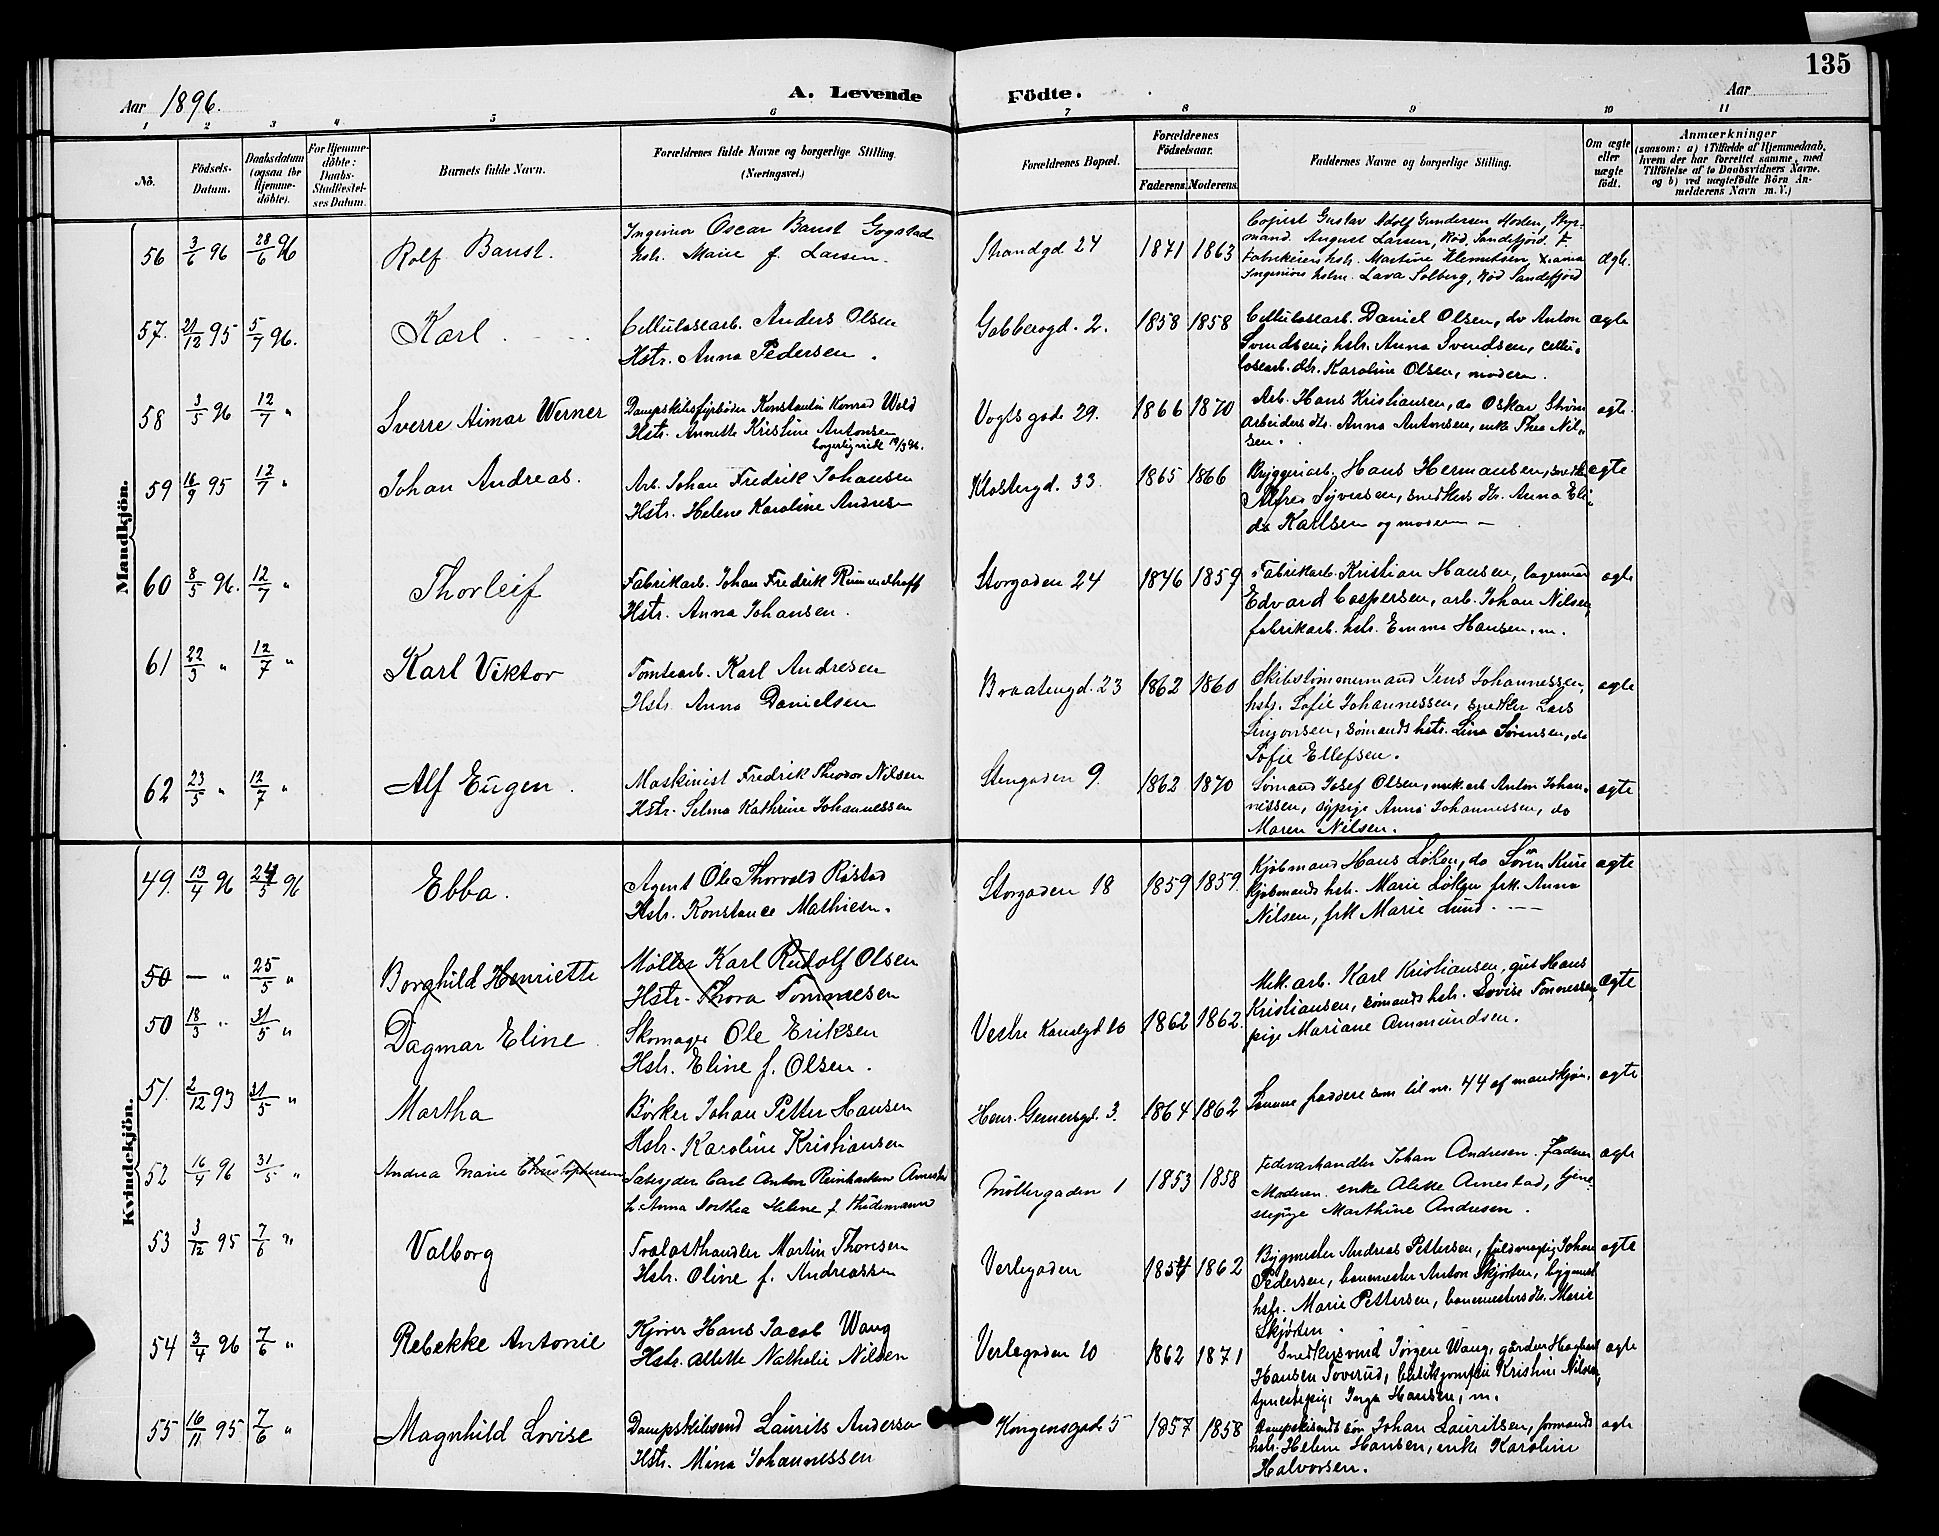 135
Aar 1896.
A. Levende Födte.
Aar
1 2 3 4 5 6 7 8 9 10 11
No.
Födsels-Datum.
Daabsdatum (ogsaa for Hjemme-döbte).
For Hjemme-döbte: Daabs-Stadfæstel-ses Datum.
Barnets fulde Navn.
Forældrenes fulde Navne og borgerlige Stilling. (Næringsvei.)
Forældrenes Bopæl.
Forældrenes Födselsaar.
Faderens. Moderens.
Faddernes Navne og borgerlige Stilling.
Om ægte eller uægte födt.
Anmærkninger
(saasom: a) i Tilfælde af Hjemmedaab, hvem der har forrettet samme, med Tilföielse af to Daabsvidners Navne. og b) ved uægtefödte Börn An-melderens Navn m. V.)
Mandkjön.
56 3/6 96 28/6 96 Rolf Banst. Ingeniør Oscar Banst Gogstad
Hstr. Marie f. Larsen. Strandgd 24 1871 1863
Copist Gustav Adolf Gundersen Moden, Styr-
mand. August Larsen, Rød, Sandefjord. F
Fabrikeiers hstr. Martine Klemetsen, Xiania
Ingeniørs hstru. Lava Solberg, Rød Sandefjord ægte.
57. 21/12 95 5/7 96. Karl Cellulosearb. Anders Olsen
Hstr. Anna Pedersen. Gabbersgd. 2. 1858 1858
Cellulosearb. Daniel Olsen, do Anton
Svendsen; hstr. Anna Svendsen, cellu-
losearb. dtr. Karoline Olsen, moderen. ægte
58 3/5 96 12/7 " Sverre Aimar Werner Dampskibsfyrbøder Konstantin Konrad Wold
Hstr. Annette Kristine Antonsen
borgerlig viede 19/3 96. Vogts gade 29. 1866 1870
Arb. Hans Kristiansen, do Oskar Strøm
arbeiders dtr. Anna Antonsen, enke Thea Nil-
sen. ægte
59 16/9 95 12/7 " Johan Andreas. Arb. Johan Fredrik Johansen
Hstr. Helene Karoline Andresen Klostergd. 33. 1865 1866
Bryggeriarb. Hans Hermansen, snedk
Alfred Syversen, snedkers dtr. Anna Eli-
da Karlsen og moderen — ægte
60 8/5 96. 12/7 " Thorleif Fabrikarb. Johan Fredrik Rimmedhoff
Hstr. Anna Johansen. Storgaden 24 1846 1859
Fabrikarb. Kristian Hansen, lagermand
Edvard Caspersen, arb. Johan Nilsen,
fabrikarb. hstr. Emma Hansen, m. ægte
61 22/3 " 12/7 " Karl Viktor Tomtearb. Karl Andresen
Hstr. Anna Danielsen Braatengd. 23 1862 1860
Skibstømmermand Jens Johannessen,
hstr. Sofie Johannessen, snedker Lars
Simonsen, sømands hstr. Lina Sørensen, do
Sofie Ellefsen. ægte
62 23/5 " 12/7 " Alf Eugen. Maskinist Fredrik Theodor Nilsen
Hstr. Selma Kathrine Johannessen Stengaden 9. 1862 1870
Sømand Josef Olsen, mek. arb Anton Johan-
nessen, sypige Anna Johannessen, do
Maren Nilsen. ægte
Kvindekjön.
49. 13/4 96 24/5 96 Ebba. Agent Ole Thorvald Røstad
Hstr. Konstance Mathisen. Storgaden 18 1859 1859.
Kjøbmand Hans Løken, do Sören
kjøbmands hstr. Marie Løken frk. Anna
Nilsen, frk Marie Lund. ægte
50 — " 25/5 " Borghild Henriette Møller Karl Rudolf Olsen
Hstr. Thora Tommesen
50 18/3 " 31/5 " Dagmar Eline Skomager Ole Eriksen
Hstr. Eline f. Olsen. Vestre Kanalgd 10 1862 1862.
Mek. arb. Karl Kristiansen, gut Hans
Kristiansen, sømands hstr. Lovise Tønnessen,
pige Mariane Ammundsen. ægte
51. 2/12 93 31/5 " Martha Børker Johan Petter Hansen
Hstr. Karoline Kristiansen Henr. Gernersgd. 3. 1864 1862
Samme faddere som til nr. 44 af mandkjøn. ægte
52 16/4 96 31/5 " Andrea Marie Christophersen Sæbesyder Carl Anton Reinhartsen Arnestad
h. Anna Dorthea Helene f. Thidemann Møllergaden 1 1853 1858
Fedevarhandler Johan Andresen. Faderen
Moderen. enke Alette Arnestad, tjene-
stepige Marthine Andresen. ægte
53 3/12 95 7/6 " Valborg Trælasthandler Martin Thoresen
Hstr. Oline f. Andreassen Verlegaden 1854 1862
Bygmester Andreas Pettersen, fuldmægtig Johan
Pedersen, banemester Anton Skjørten, bygmest
hstr. Marie Pettersen, banemesters dtr. Marie
Skjørten ægte
54 3/4 96 7/6 " Rebekke Antonie Kjører Hans Jacob Wang
Hstr. Alette Nathalie Nilsen Verlegaden 10 1862 1871
Snedkersvend Jörgen Wang, gårdbr Hagbart
Hansen Soverud, butikjomfru Kristine Nilsen,
tjenestepige Inga Hansen, m. ægte
55 16/11 95. 7/6 " Magnhild Lovise Dampskibsmd Laurits Andersen
Hstr. Mina Johannessen Kongensgade 5 1857 1858
Dampskibsmds søn Johan Lauritsen, formands
hstr. Helene Hansen, enke Karoline
Halvorsen. ægte